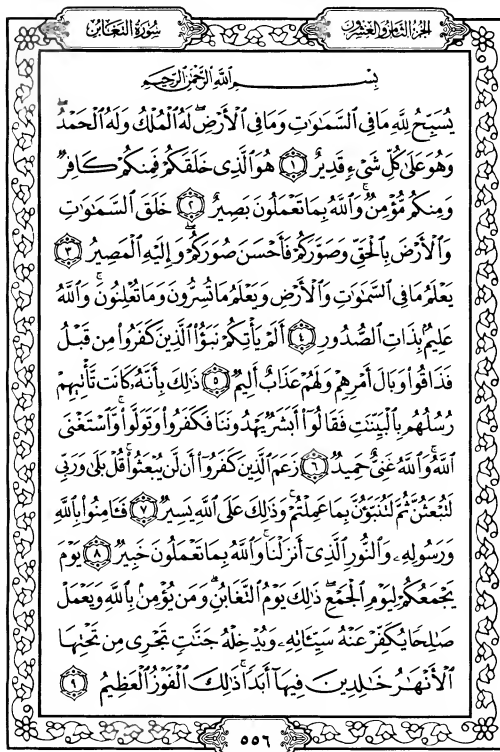 سُورَةُ التَّغَابُن
الجُزْءُ الثَّامِنُ وَالعِشْرُونَ
بِسْمِ ٱللَّهِ ٱلرَّحْمَٰنِ ٱلرَّحِيمِ
يُسَبِّحُ لِلَّهِ مَا فِى ٱلسَّمَٰوَٰتِ وَمَا فِى ٱلْأَرْضِۖ لَهُ ٱلْمُلْكُ وَلَهُ ٱلْحَمْدُۖ
وَهُوَ عَلَىٰ كُلِّ شَىْءٍ قَدِيرٌ ١ هُوَ ٱلَّذِى خَلَقَكُمْ فَمِنكُمْ كَافِرٌ
وَمِنكُم مُّؤْمِنٌۚ وَٱللَّهُ بِمَا تَعْمَلُونَ بَصِيرٌ ٢ خَلَقَ ٱلسَّمَٰوَٰتِ
وَٱلْأَرْضَ بِٱلْحَقِّ وَصَوَّرَكُمْ فَأَحْسَنَ صُوَرَكُمْۖ وَإِلَيْهِ ٱلْمَصِيرُ ٣
يَعْلَمُ مَا فِى ٱلسَّمَٰوَٰتِ وَٱلْأَرْضِ وَيَعْلَمُ مَا تُسِرُّونَ وَمَا تُعْلِنُونَۚ وَٱللَّهُ
عَلِيمٌۢ بِذَاتِ ٱلصُّدُورِ ٤ أَلَمْ يَأْتِكُمْ نَبَؤُا۟ ٱلَّذِينَ كَفَرُوا۟ مِن قَبْلُ
فَذَاقُوا۟ وَبَالَ أَمْرِهِمْ وَلَهُمْ عَذَابٌ أَلِيمٌ ٥ ذَٰلِكَ بِأَنَّهُۥ كَانَت تَّأْتِيهِمْ
رُسُلُهُم بِٱلْبَيِّنَٰتِ فَقَالُوٓا۟ أَبَشَرٌ يَهْدُونَنَا فَكَفَرُوا۟ وَتَوَلَّوا۟ۚ وَّٱسْتَغْنَى
ٱللَّهُۚ وَٱللَّهُ غَنِىٌّ حَمِيدٌ ٦ زَعَمَ ٱلَّذِينَ كَفَرُوٓا۟ أَن لَّن يُبْعَثُوا۟ۚ قُلْ بَلَىٰ وَرَبِّى
لَتُبْعَثُنَّ ثُمَّ لَتُنَبَّؤُنَّ بِمَا عَمِلْتُمْۚ وَذَٰلِكَ عَلَى ٱللَّهِ يَسِيرٌ ٧ فَـَٔامِنُوا۟ بِٱللَّهِ
وَرَسُولِهِۦ وَٱلنُّورِ ٱلَّذِىٓ أَنزَلْنَاۚ وَٱللَّهُ بِمَا تَعْمَلُونَ خَبِيرٌ ٨ يَوْمَ
يَجْمَعُكُمْ لِيَوْمِ ٱلْجَمْعِۖ ذَٰلِكَ يَوْمُ ٱلتَّغَابُنِۗ وَمَن يُؤْمِنۢ بِٱللَّهِ وَيَعْمَلْ
صَٰلِحًا يُكَفِّرْ عَنْهُ سَيِّـَٔاتِهِۦ وَيُدْخِلْهُ جَنَّٰتٍ تَجْرِى مِن تَحْتِهَا
ٱلْأَنْهَٰرُ خَٰلِدِينَ فِيهَآ أَبَدًاۚ ذَٰلِكَ ٱلْفَوْزُ ٱلْعَظِيمُ ٩
٥٥٦